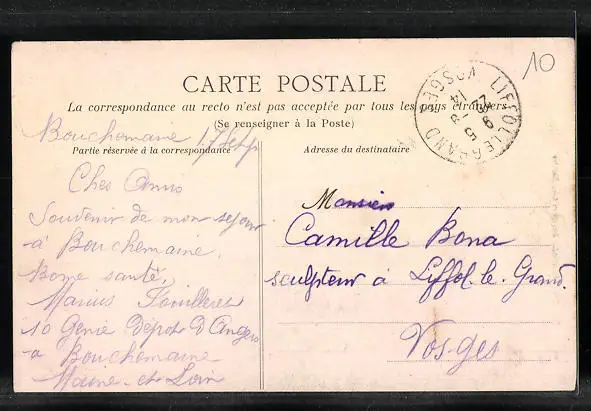 10
CARTE POSTALE
La correspondance au recto n'est pas acceptée par tous les pays étrangers
(Se renseigner à la Poste)
LIFFOL LE GRAND VOSGES
Bouchemaine 17 Sept
Partie réservée à la correspondance
Adresse du destinataire
Cher
Souvenir de mon sejour
à Bouchemaine.
Bonne santé,
Marius
10 Génie Depot d'Angers
a Bouchemaine
Maine-et-Loir
Monsieur
Camille Bona
sculpteur à Liffol-le-Grand.
Vosges